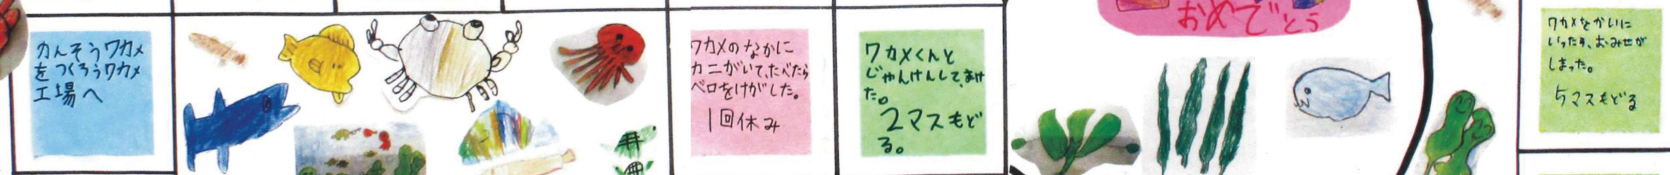 カんそうワカメ
をつくろうワカメ
工場へ
ワカメのなかに
カニがいて、たべたら
ベロをけがした。
1回休み
ワカメくんと
じゃんけんして、まけ
た。
2マスもど
る。
おめでとう
ワカメをかいに
いったら、おみせが
しまった。
5マスもどる